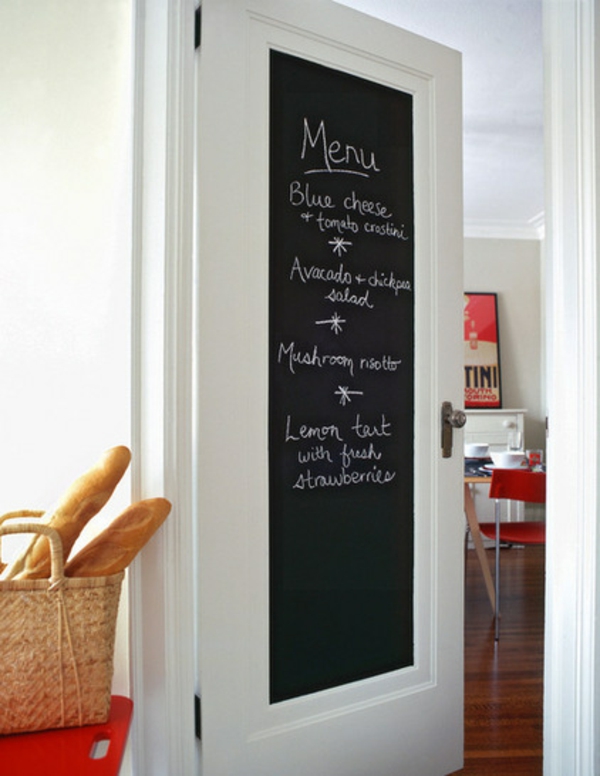 Menu
Blue cheese
+ tomato crostini
Avacado + chickpea
salad
Mushroom risotto
Lemon tart
with fresh
strawberries
TINI